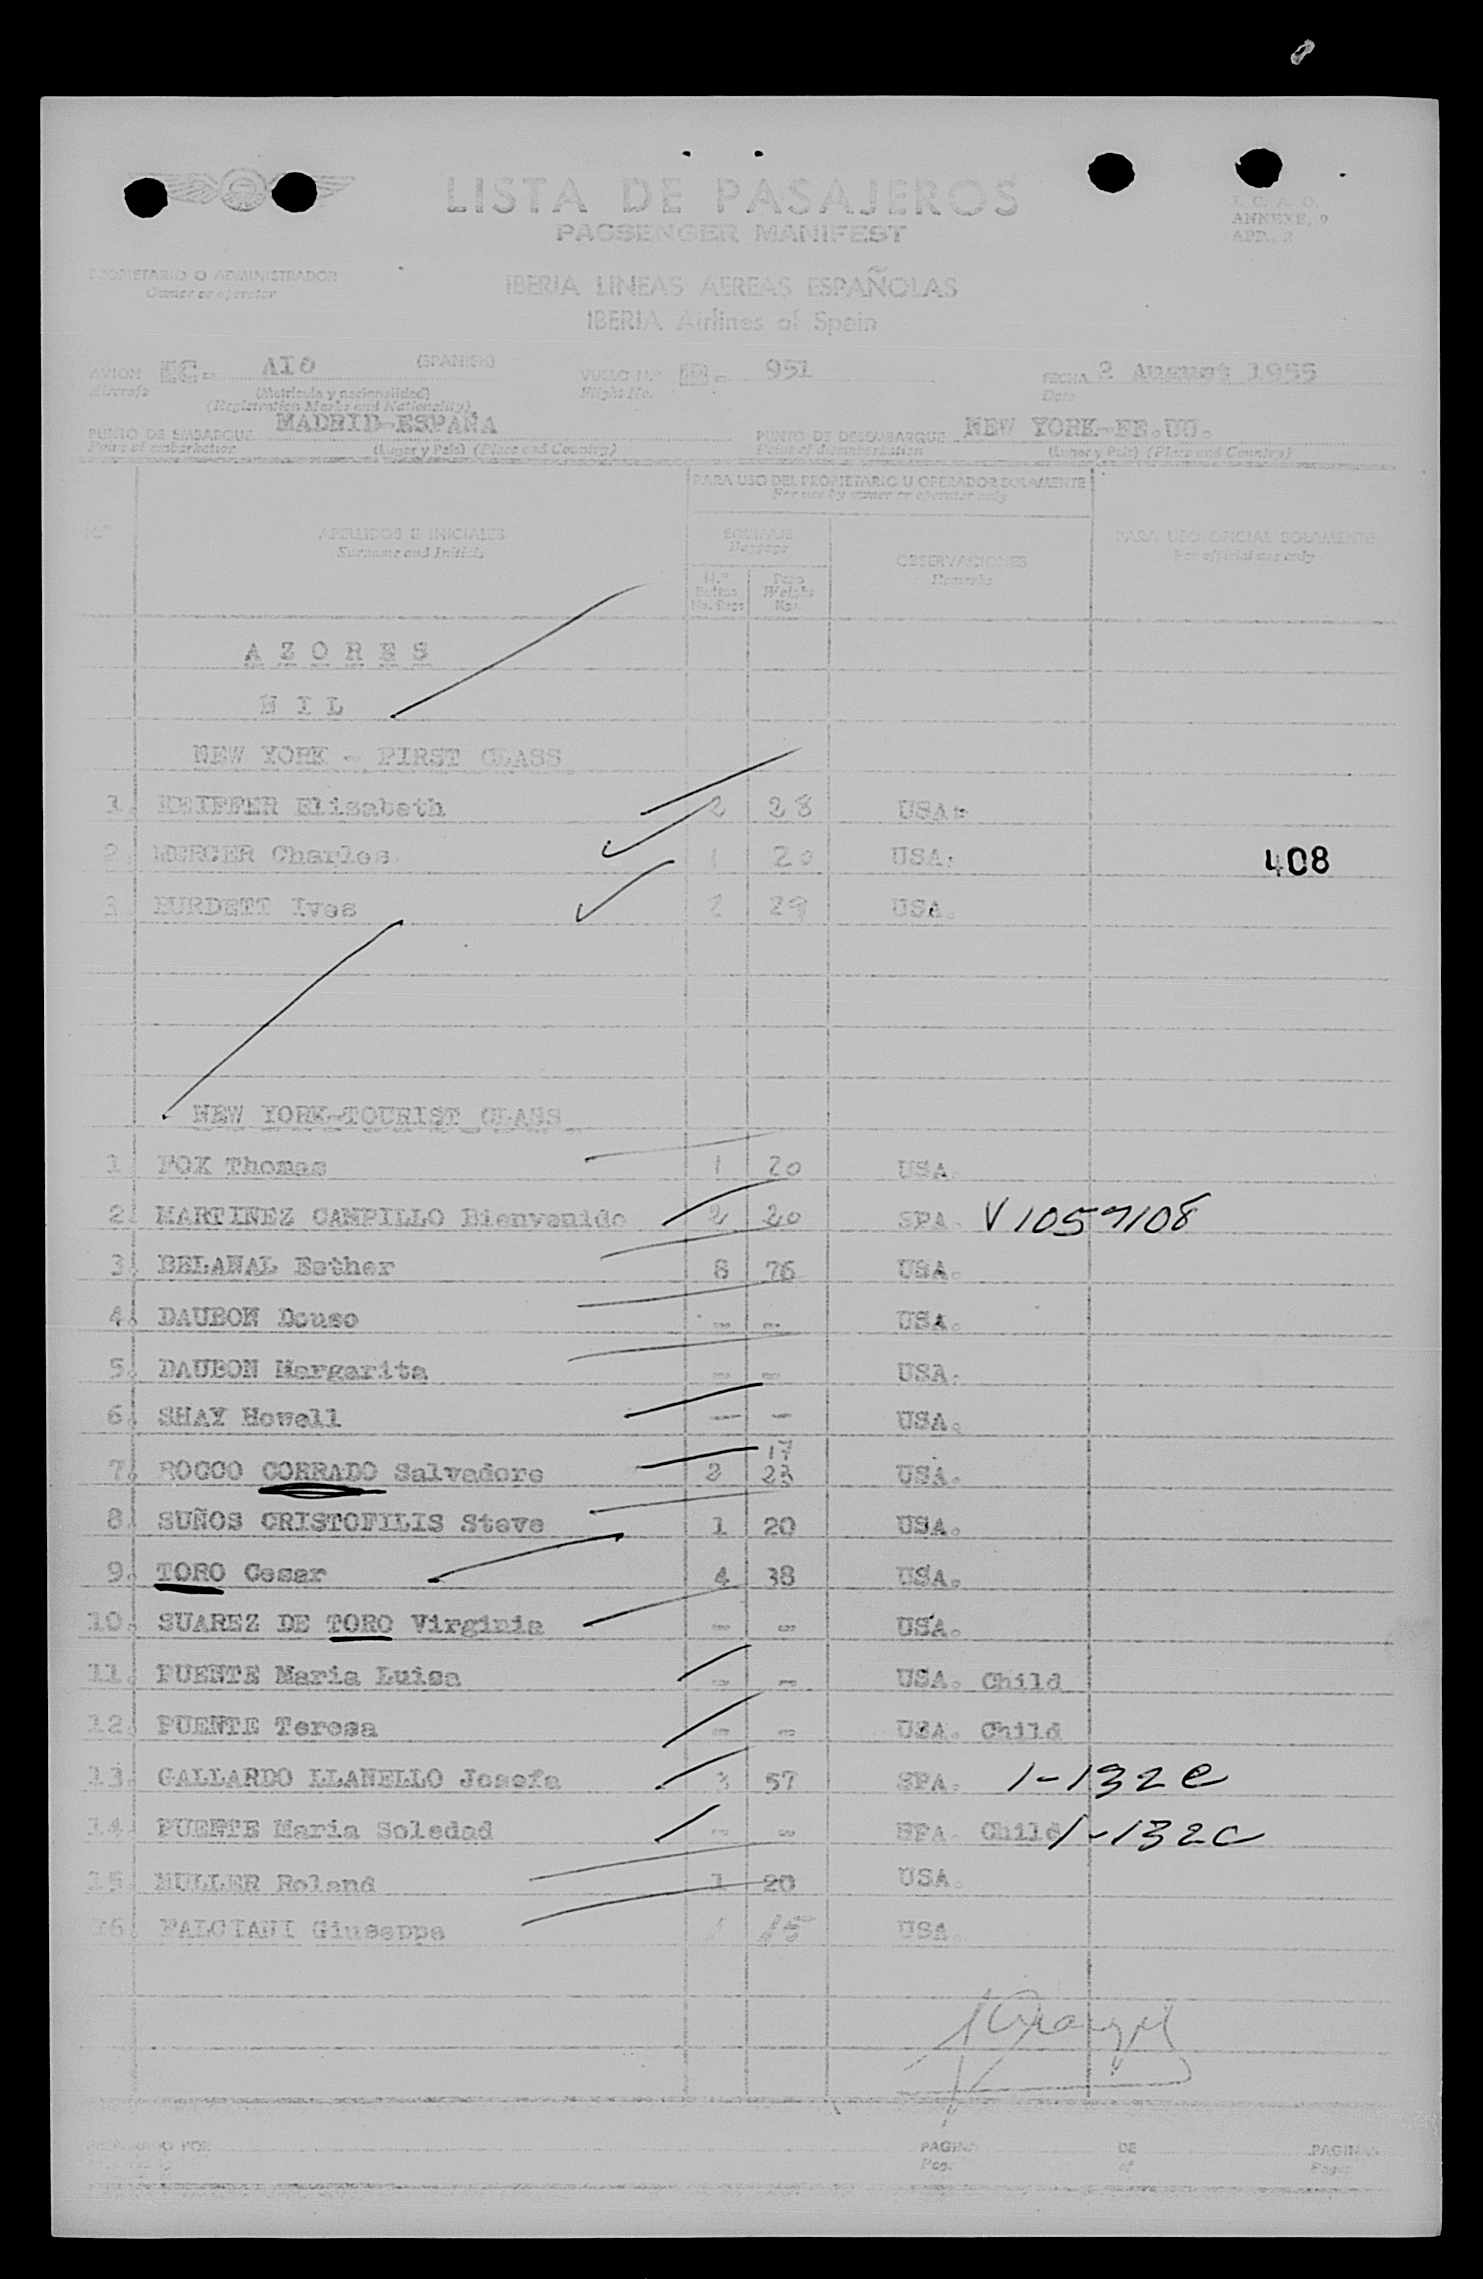 LISTA DE PASAJEROS
PASSENGER MANIFEST
I. C. A. O.
ANNEXE, 9
APD., 2
PROPIETARIO O ADMINISTRADOR
Owner or operator
IBERIA LINEAS AEREAS ESPAÑOLAS
IBERIA Airlines of Spain
AVION EC- AIO (SPANISH) VUELO N.º IB- 951 FECHA 2 August 1955
Aircraft (Matrícula y nacionalidad) Flight No. Date
(Registration Marks and Nationality)
PUNTO DE EMBARQUE MADRID-ESPAÑA PUNTO DE DESEMBARQUE NEW YORK-EE.UU.
Point of embarkation (Lugar y País) (Place and Country) Point of disembarkation (Lugar y País) (Place and Country)
PARA USO DEL PROPIETARIO U OPERADOR SOLAMENTE
For use by owner or operator only
N.º APELLIDOS E INICIALES EQUIPAJE OBSERVACIONES PARA USO OFICIAL SOLAMENTE
Surname and Initials Baggage Remarks For official use only
N.º Bultos Peso
No. Bags Weight Kgs.
AZORES
NIL
NEW YORK - FIRST CLASS
1. Elisabeth 2 28 USA.
2. MERCER Charles 1 20 USA. 408
3. BURDETT Ives 2 29 USA.
NEW YORK-TOURIST CLASS
1. FOX Thomas 1 20 USA.
2. MARTINEZ CAMPILLO Bienvenido 2 20 SPA. V1057108
3. BELANAL Esther 8 76 USA.
4. DAUBON Douso - - USA.
5. DAUBON Margarita - - USA.
6. SHAY Howell - - USA.
17
7. ROCCO CORRADO Salvadore 2 23 USA.
8. SUÑOS CRISTOFILIS Steve 1 20 USA.
9. TORO Cesar 4 38 USA.
10. SUAREZ DE TORO Virginia - - USA.
11. PUENTE Maria Luisa - - USA. Child
12. PUENTE Teresa - - USA. Child
13. GALLARDO LLANELLO Josefa 3 57 SPA. 1-132c
14. PUENTE Maria Soledad - - SPA. Child 1-132c
15. MULLER Roland 1 20 USA.
16. FALCIANI Giuseppe 1 15 USA.
PREPARADO POR PAGINA DE PAGINAS
Page of Pages